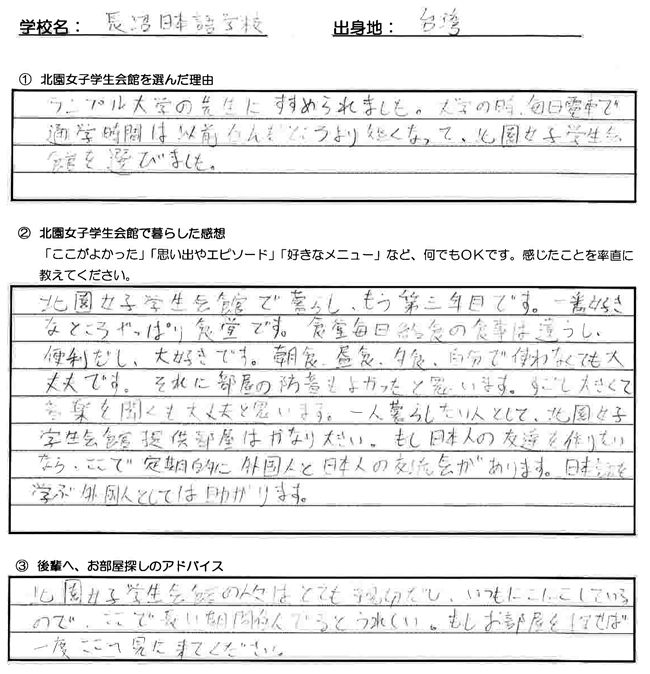 学校名： 長沼日本語学校 出身地： 台湾
① 北園女子学生会館を選んだ理由
ランプル大学の先生にすすめられました。大学の時、毎日電車で
通学時間は以前住んだところより短くなって、北園女子学生会
館を選びました。
② 北園女子学生会館で暮らした感想
「ここがよかった」「思い出やエピソード」「好きなメニュー」など、何でもOKです。感じたことを率直に
教えてください。
北園女子学生会館で暮らし、もう第三年目です。一番好き
なところやっぱり食堂です。食堂毎日給食の食事は違うし、
便利だし、大好きです。朝食、昼食、夕食、自分で使わなくても大
丈夫です。それに部屋の防音もよかったと思います。すごし大きくて
音楽を聞くも大丈夫と思います。一人暮らしたい人として、北園女子
学生会館提供部屋はかなり大きい。もし日本人の友達を作りたい
なら、ここで定期的に外国人と日本人の交流会があります。日本語を
学ぶ外国人としては助かります。
③ 後輩へ、お部屋探しのアドバイス
北園女子学生会館の人々はとても親切だし、いつもにこにこしている
ので、ここで長い期間住んでるとうれしい。もしお部屋を
一度ここへ見に来てください。